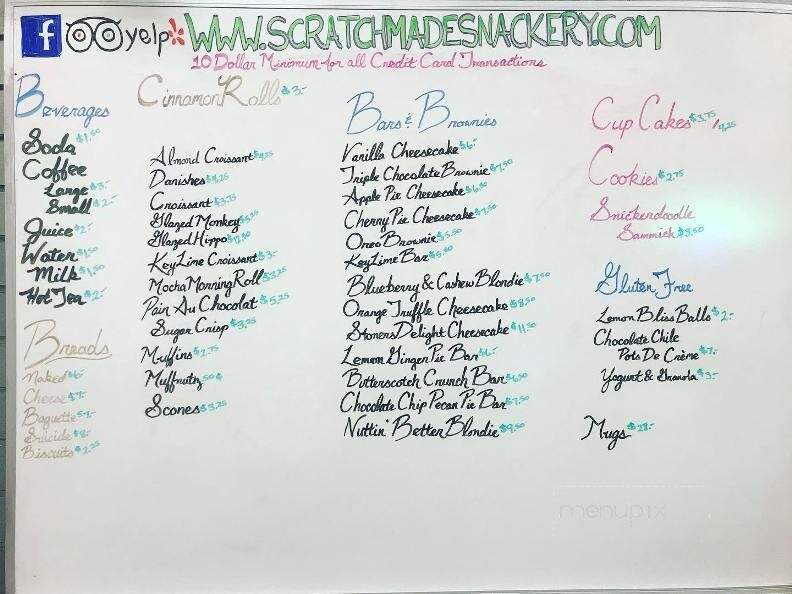 f yelp WWW.SCRATCHMADESNACKERY.COM
10 Dollar Minimum for all Credit Card Transactions
Beverages
Soda $1.50
Coffee
Large $3.-
Small $2.-
Juice $2.-
Water $1.50
Milk $1.50
Hot Tea $2.-
Breads
Naked $6.-
Cheese $7.-
Baguette $7.-
Suicide $8.-
Biscuits $2.25
Cinnamon Rolls $3.-
Almond Croissant $4.25
Danishes $4.25
Croissant $3.75
Glazed Monkey
Glazed Hippo
Key Lime Croissant $3.-
Mocha Morning Roll $3.25
Pain Au Chocolat $5.25
Sugar Crisp $3.25
Muffins $2.75
Muffnutz 50¢
Scones $3.25
Bars & Brownies
Vanilla Cheesecake $6.-
Triple Chocolate Brownie $7.50
Apple Pie Cheesecake $6.50
Cherry Pie Cheesecake $7.50
Oreo Brownie $5.50
Key Lime Bar $5.50
Blueberry & Cashew Blondie $7.50
Orange Truffle Cheesecake $8.50
Stoners Delight Cheesecake $11.50
Lemon Ginger Pie Bar $6.-
Butterscotch Crunch Bar $6.50
Chocolate Chip Pecan Pie Bar $7.50
Nuttin' Better Blondie $9.50
Cup Cakes $3.75 / 4.25
Cookies $2.75
Snickendoodle
Sammich $3.50
Gluten Free
Lemon Bliss Balls $2.-
Chocolate Chile
Pots De Crème $7.-
Yogurt & Granola $3.-
Mugs $28.-
menupix